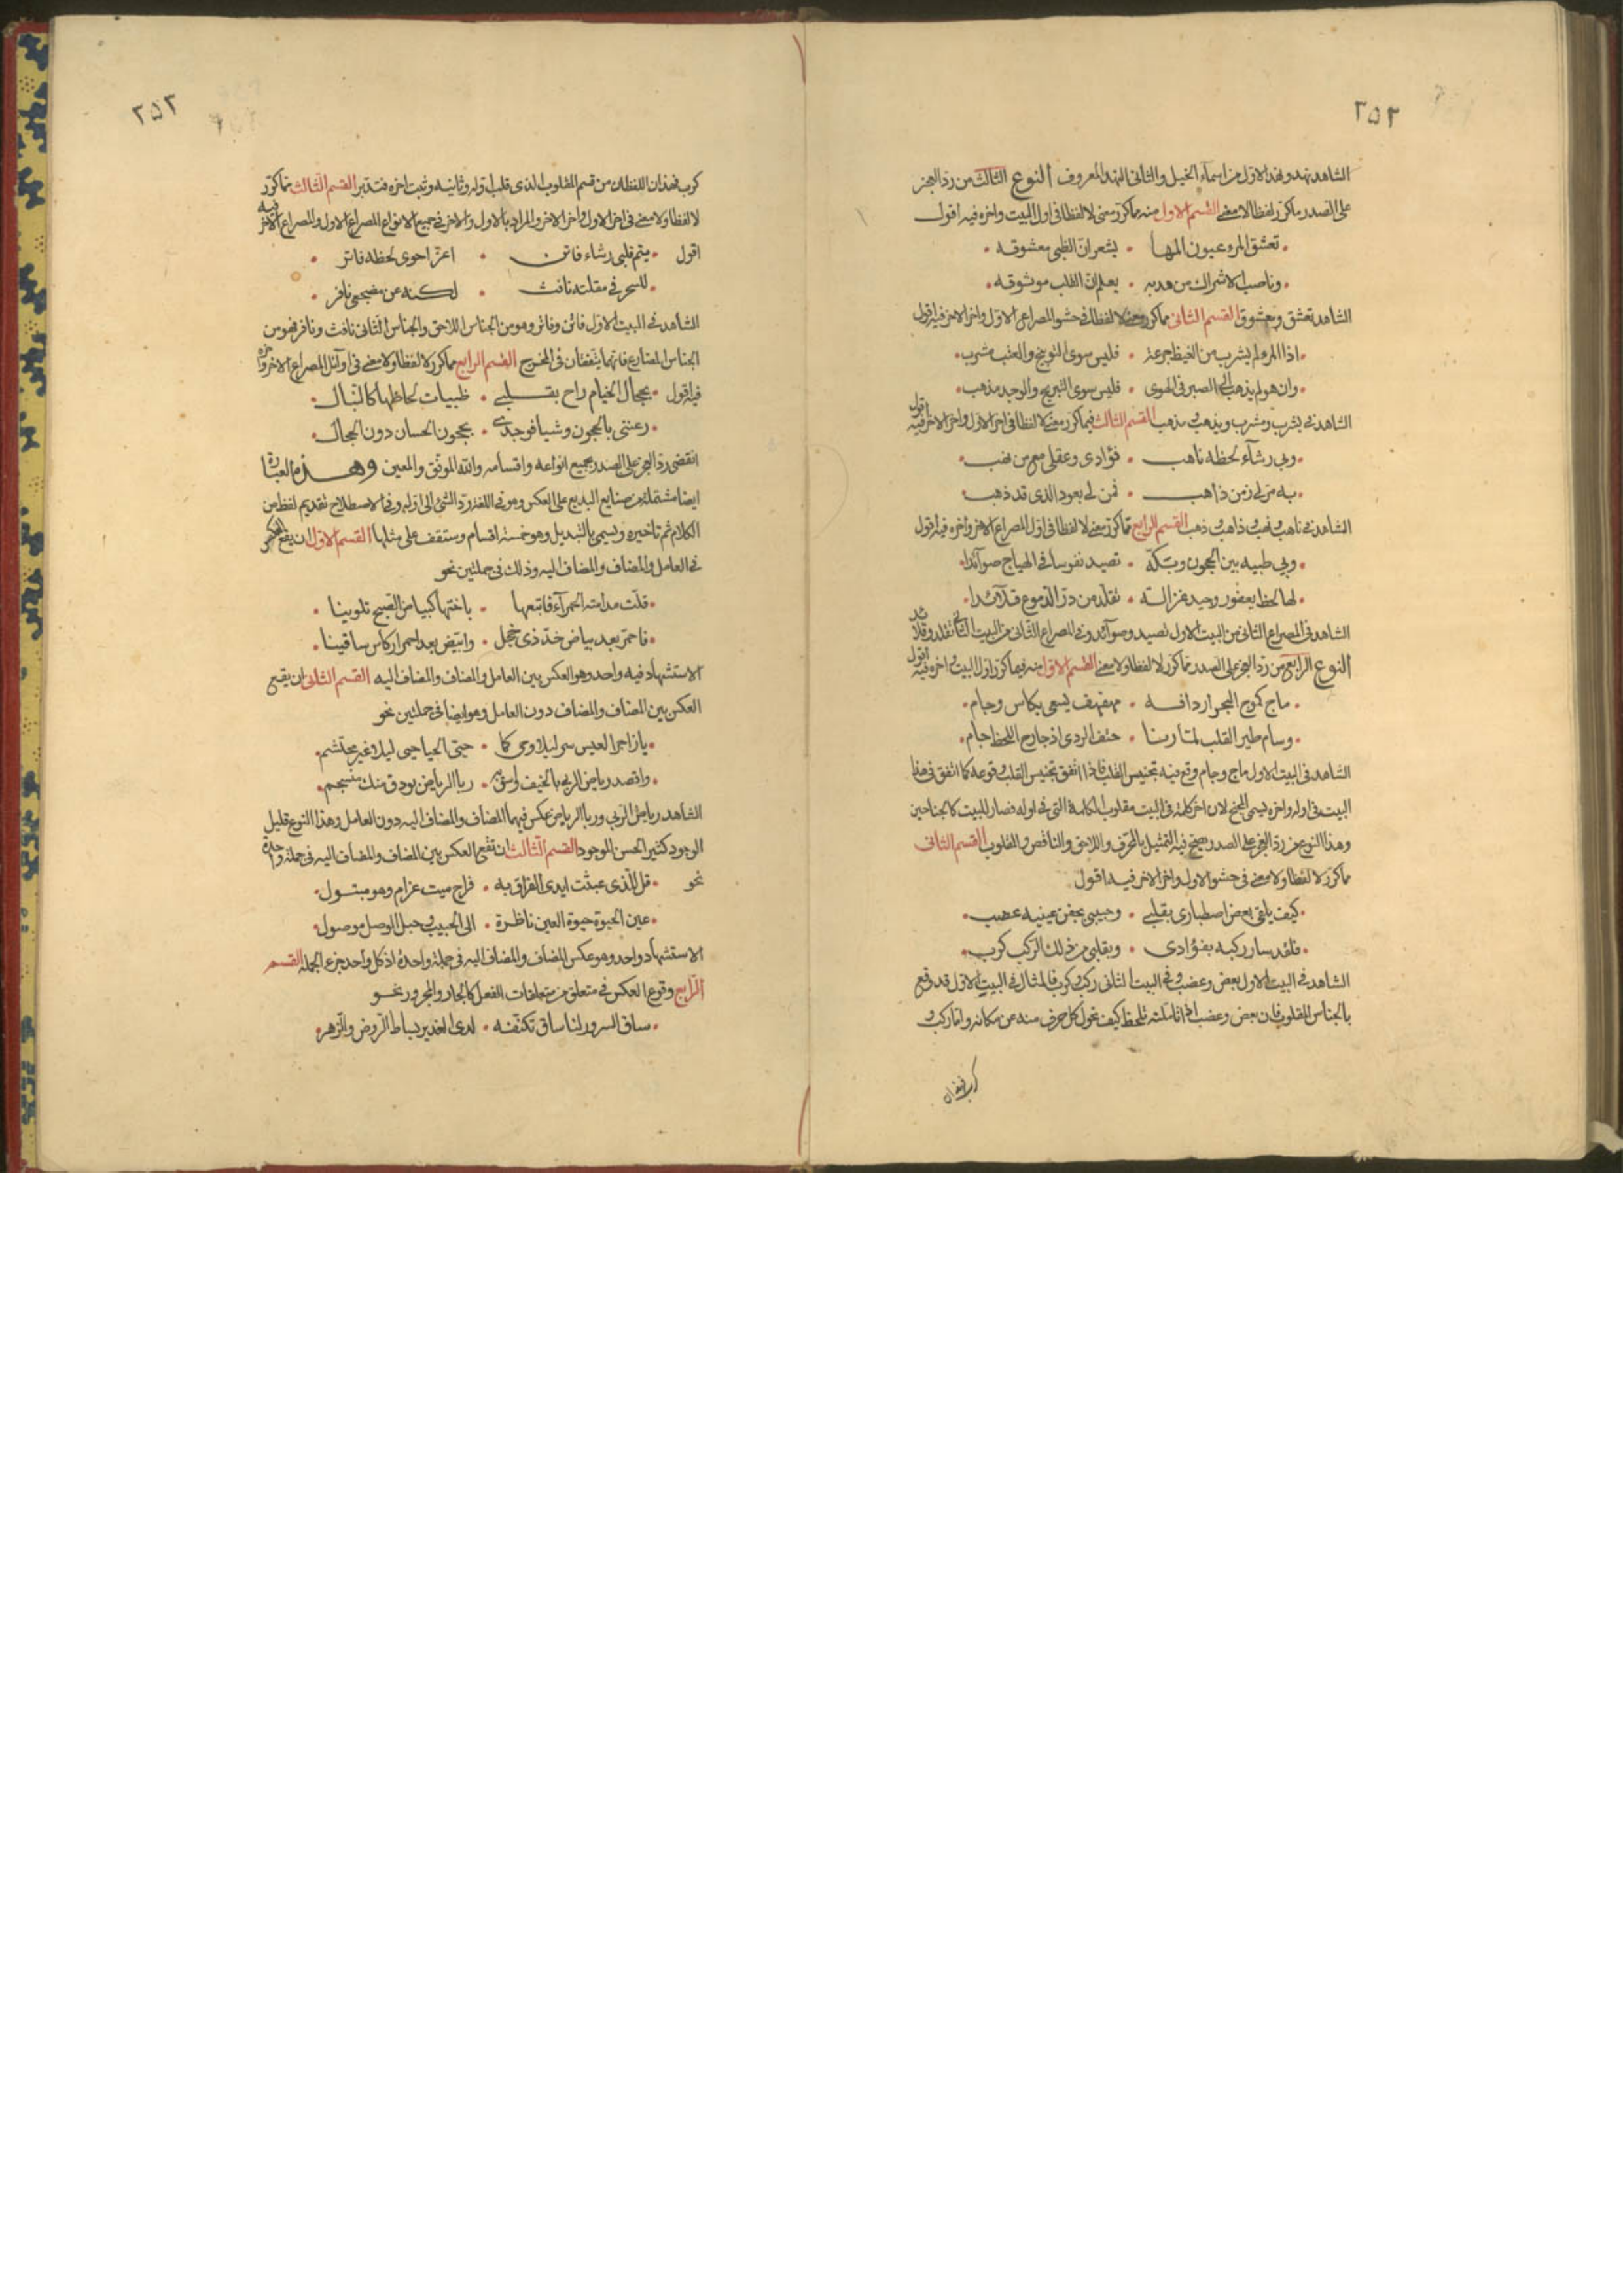 ٢٥٢
الشاهد نهد ونهد الاول من اسماء الخيل والثانى النهد المعروف النوع الثالث من رد العجز
على الصدر ما كرر لفظا لا معنى القسم الاول منه مما كرر معنى لا لفظا فى اول البيت واخره فيه اقول
تعشق المرء عيون المها • يشعر ان الظبى معشوقه
وناصب الاشراك من هدبه • يعلم ان القلب موثوقه
الشاهد تعشق ومعشوق القسم الثانى مما كرر معنى لا لفظا فى حشو المصراع الاول واخر الاخر فيه اقول
اذا المرء لم يشرب من الغيظ جرعة • فليس سوى التوبيخ والعتب مشرب
وان هو لم يذهب الى الصبر فى الهوى • فليس سوى التبريح والوجد مذهب
الشاهد فى يشرب ومشرب ويذهب ومذهب القسم الثالث فيما كرر معنى لا لفظا فى اخر الاول واخر الاخر فيه اقول
وبى رشآء لحظه ناهب • فؤادى وعقلى مع من نهب
به مر لى زمن ذاهب • فمن لى بعود الذى قد ذهب
الشاهد فى ناهب ونهب وذاهب وذهب القسم الرابع مما كرر معنى لا لفظا فى اول المصراع الاخر واخره فيه اقول
وبى ظبيه بين الحجون ومكة • تصيد نفوسا فى الهياج صوآئدا
لها لحظ يعفور وجيد غزالة • تقلد من در الدموع قلآئدا
الشاهد فى المصراع الثانى من البيت الاول تصيد وصوآئد وفى المصراع الثانى من البيت الثانى تقلد وقلائد
النوع الرابع من رد العجز على الصدر مما كرر لا لفظا ولا معنى القسم الاول منه فيما كرر اول البيت واخره فيه اقول
ماج كموج البحر اردافه • مهفهف يسعى بكاس وجام
وسام طير القلب لما رنا • حتف الردى اذ جارح اللحظ حام
الشاهد فى البيت الاول ماج وجام وقع فيه تجنيس القلب فاذا اتفق تجنيس القلب وقوعه كما اتفق فى هذا
البيت فى اوله واخره يسمى المجنح لان اخر كلمة فى البيت مقلوب الكلمة التى فى اوله فصار للبيت كالجناحين
وهذا النوع من رد العجز على الصدر يصح فيه التمثيل بالمحرف واللاحق والناقص والمقلوب القسم الثانى
مما كرر لا لفظا ولا معنى فى حشو الاول واخر الاخر فيه اقول
كيف يلقى بعض اصطبارى بقلبى • وحبيبى بجفن عينيه عضب
فلقد سار ركبه بفؤادى • وبقلبى من ذلك الركب كرب
الشاهد فى البيت الاول بعض وعضب وفى البيت الثانى ركب وكرب فالمثال فى البيت الاول قد وقع
بالجناس المقلوب فان بعض وعضب اذا تاملته تلحظ كيف تحول كل حرف منه عن مكانه واما ركب و
كرب فهذان
٢٥٣
كرب فهذان اللفظان من قسم المقلوب الذى قلب اوله وثانيه وثبت اخره فتدبر القسم الثالث مما كرر
لا لفظا ولا معنى فى اخر الاول واخر الاخر والمراد بالاول والاخر فى جميع الانواع المصراع الاول والمصراع الاخر فيه
اقول • يتم قلبى رشاء فاتن • اغر احوى لحظه فاتر
للسحر فى مقلته نافث • لكنه عن مضجعى نافر
الشاهد فى البيت الاول فاتن وفاتر وهو من الجناس اللاحق والجناس الثانى نافث ونافر فهو من
الجناس المضارع فانهما يتفقان فى المخرج القسم الرابع مما كرر لا لفظا ولا معنى فى اوآئل المصراع الاخر واخره
فيه اقول • بحجال الخيام راح بقلبى • ظبيات لحاظها كالنبال
رعننى بالحجون وشيا فوجدى • بحجون الحسان دون الحجال
انقضى رد العجز على الصدر بجميع انواعه واقسامه والله الموفق والمعين وهذه العبارة
ايضا مشتملة من صنايع البديع على العكس وهو فى اللغة رد الشئ الى اوله وفى الاصطلاح تقديم لفظ من
الكلام ثم تاخيره ويسمى بالتبديل وهو خمسة اقسام وستقف على مثلها القسم الاول ان يقع العكس
فى العامل والمضاف والمضاف اليه وذلك فى جملتين نحو
قلت مدامته الحمرآء فاتبعها • باختها كبيا من الصبح تلوينا
فاحمر بعد بياض خد ذى خجل • وابيض بعد احمرار كاس ساقينا
الاستشهاد فيه واحد وهو العكس بين العامل والمضاف والمضاف اليه القسم الثانى ان يقع
العكس بين المضاف والمضاف دون العامل وهو ايضا فى جملتين نحو
يا زاجر العيس سر ليلا وحى كما • حيى الحيا حى ليلا غير محتشم
واقصد رياض الربى بالخيف واسق • ربا الرياض بودق منك منسجم
الشاهد رياض الربى وربا الرياض عكس فيهما المضاف والمضاف اليه دون العامل وهذا النوع قليل
الوجود كثير الحسن الموجود القسم الثالث ان تقع العكس بين المضاف والمضاف اليه فى جملة واحدة
نحو • قل للذى عبثت ايدى الفراق به • فراح ميت غرام وهو مبتول
عين الحيوة حيوة العين ناظرة • الى الحبيب وحبل الوصل موصول
الاستشهاد واحد وهو عكس المضاف والمضاف اليه فى جملة واحدة اذ كل واحد جزء الجملة القسم
الرابع وقوع العكس فى متعلق من متعلقات الفعل كالجار والمجرور نحو
ساق السرور لنا ساق تكنفه • لدى الغدير بساط الروض والزهر